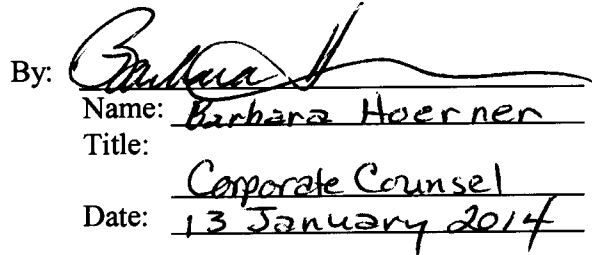 By: Barbara H
Name: Barbara Hoerner
Title:
Corporate Counsel
Date: 13 January 2014